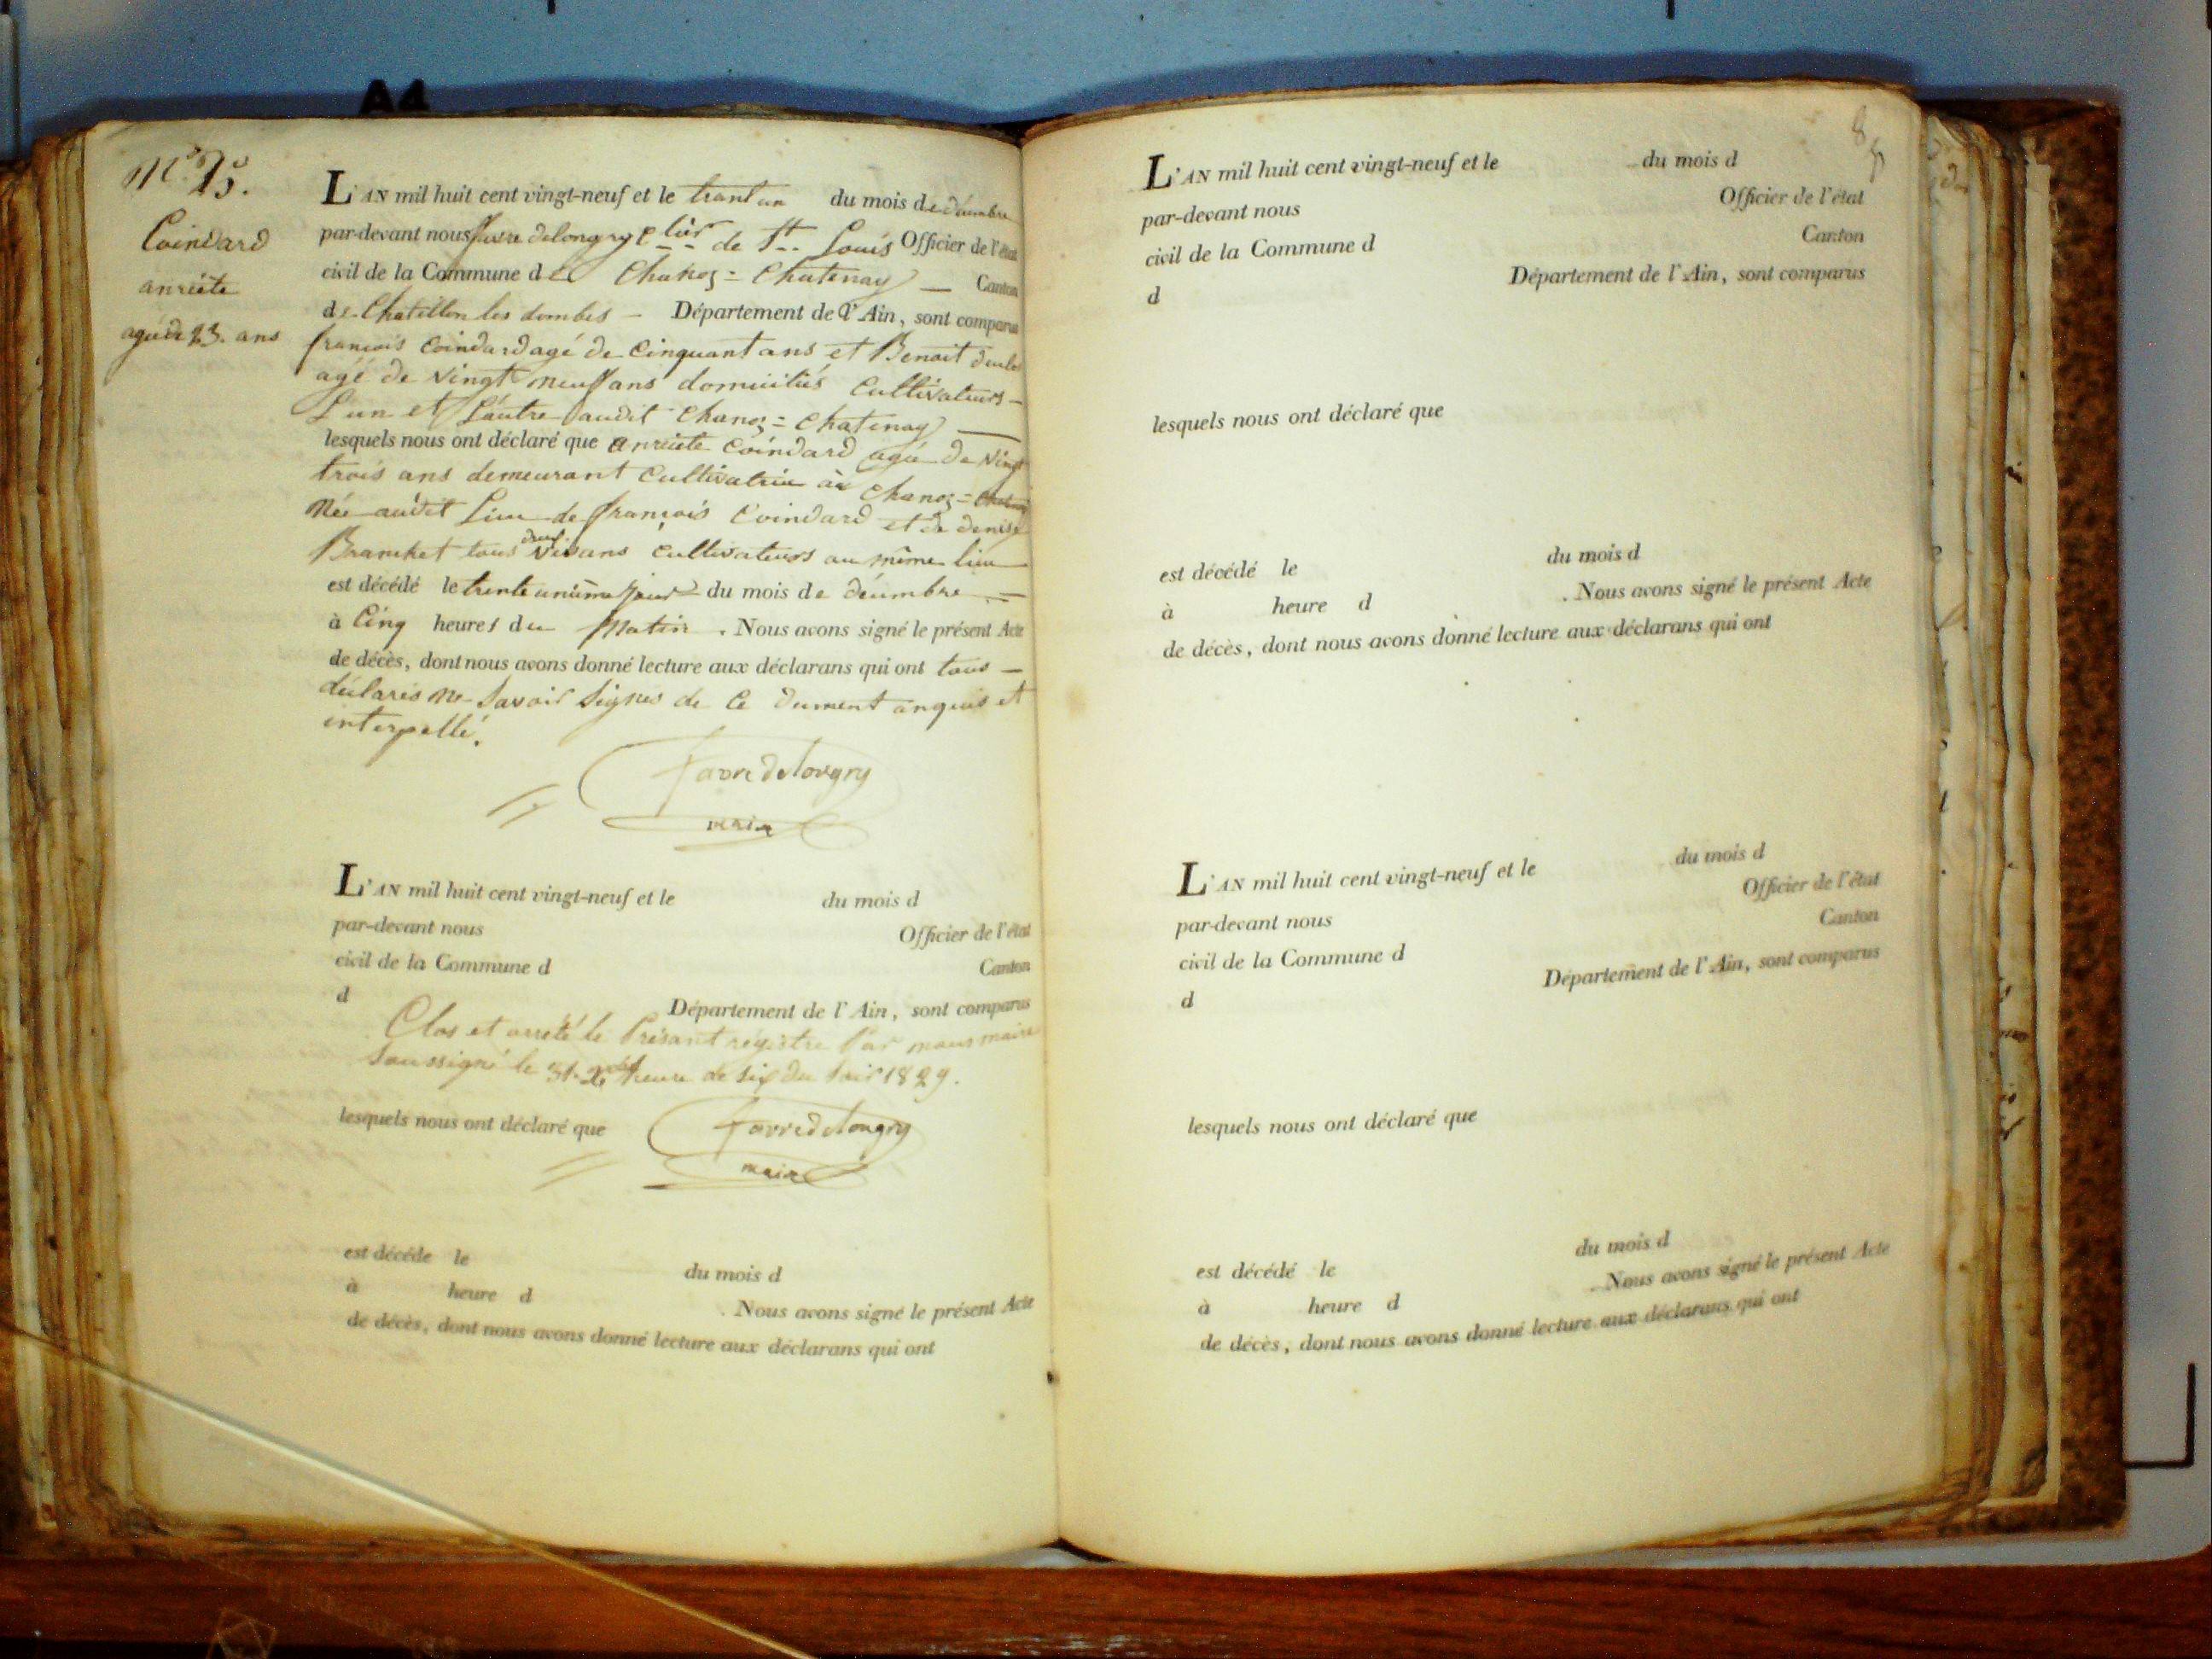 A4
N° 25.
Coindard
anriète
agée de 23. ans
L'AN mil huit cent vingt-neuf et le trant un du mois de décembre
par-devant nous favre delongry C lier de St. Louis Officier de l'état
civil de la Commune de Chanoz = Chatenay — Canton
de Chatillon les dombes — Département de l'Ain, sont comparus
francois Coindard agé de Cinquant ans et Benoit
agé de vingt neuf ans domiciliés Cultivateurs —
L'un et L'autre audit Chanoz = Chatenay —
lesquels nous ont déclaré que anriete Coindard agée de vingt
trois ans demeurant Cultivatrice à Chanoz =
Née audit Lieu de francois Coindard et de denise
tous deux vivans Cultivateurs au même lieu
est décédé le trente unième jour du mois de décembre =
à Cinq heures du Matin . Nous avons signé le présent Acte
de décès, dont nous avons donné lecture aux déclarans qui ont tous —
déclarés ne Savoir Signer de Ce dument anquis et
interpellé.
favre delongry
maire
L'AN mil huit cent vingt-neuf et le du mois d
par-devant nous Officier de l'état
civil de la Commune d Canton
d Département de l'Ain, sont comparus
Clos et arrêté le Présant régistre Par nous maire
Soussigné le 31. Xbre heure de six du soir 1829.
lesquels nous ont déclaré que
favre delongry
maire
est décédé le du mois d
à heure d . Nous avons signé le présent Acte
de décès, dont nous avons donné lecture aux déclarans qui ont
8
L'AN mil huit cent vingt-neuf et le du mois d
par-devant nous Officier de l'état
civil de la Commune d Canton
d Département de l'Ain, sont comparus
lesquels nous ont déclaré que
est décédé le du mois d
à heure d . Nous avons signé le présent Acte
de décès, dont nous avons donné lecture aux déclarans qui ont
L'AN mil huit cent vingt-neuf et le du mois d
par-devant nous Officier de l'état
civil de la Commune d Canton
d Département de l'Ain, sont comparus
lesquels nous ont déclaré que
est décédé le du mois d
à heure d . Nous avons signé le présent Acte
de décès, dont nous avons donné lecture aux déclarans qui ont